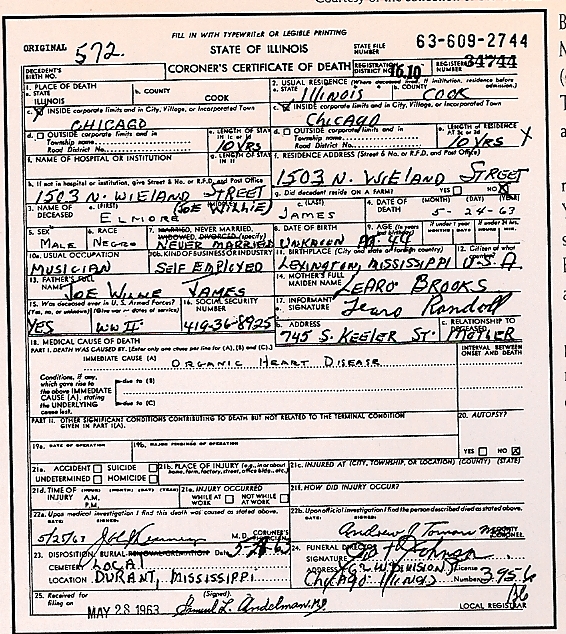 FILL IN WITH TYPEWRITER OR LEGIBLE PRINTING
ORIGINAL 572. STATE OF ILLINOIS STATE FILE NUMBER 63-609-2744
DECEDENT'S BIRTH NO. CORONER'S CERTIFICATE OF DEATH REGISTRATION DISTRICT NO. 16.10 REGISTERED NUMBER 34744
1. PLACE OF DEATH 2. USUAL RESIDENCE (Where deceased lived. If institution, residence before admission.)
a. STATE ILLINOIS b. COUNTY COOK a. STATE ILLINOIS b. COUNTY COOK
c. INSIDE corporate limits and in City, Village, or Incorporated Town c. INSIDE corporate limits and in City, Village, or Incorporated Town
CHICAGO Chicago
d. OUTSIDE corporate limits and in Township name Road District No. e. LENGTH OF STAY IN 1c or 1d 10 YRS d. OUTSIDE corporate limits and in Township name Road District No. e. LENGTH OF RESIDENCE AT 2c or 2d 10 YRS X
f. NAME OF HOSPITAL OR INSTITUTION g. LENGTH OF STAY IN 1f f. RESIDENCE ADDRESS (Street & No. or R.F.D. and Post Office)
1503 N. WIELAND STREET
h. If not in hospital or institution, give Street & No. or R.F.D. and Post Office
1503 N. WIELAND STREET g. Did decedent reside ON A FARM? YES NO X
3. NAME OF DECEASED a. (FIRST) ELMORE (JOE WILLIE) c. (LAST) JAMES 4. DATE OF DEATH (MONTH) (DAY) (YEAR) 5- 24-63
5. SEX MALE 6. RACE NEGRO 7. MARRIED, NEVER MARRIED, WIDOWED, DIVORCED (specify) NEVER MARRIED 8. DATE OF BIRTH UNKNOWN 9. AGE (In years last birthday) 44
10a. USUAL OCCUPATION MUSICIAN 10b. KIND OF BUSINESS OR INDUSTRY SELF EMPLOYED 11. BIRTHPLACE (City and state or foreign country) LEXINGTON, MISSISSIPPI 12. Citizen of what U.S.A
13. FATHER'S FULL NAME JOE WILLIE JAMES 14. MOTHER'S FULL MAIDEN NAME LEARO BROOKS
15. Was deceased ever in U.S. Armed Forces? (Yes, no, or unknown) (Give war or dates of service) YES WW II 16. SOCIAL SECURITY NUMBER 419-36-8925 17. INFORMANT a. SIGNATURE Learo Randolf
b. ADDRESS 745 S. KEELER ST. c. RELATIONSHIP TO DECEASED MOTHER
18. MEDICAL CAUSE OF DEATH
PART I. DEATH WAS CAUSED BY: (Enter only one cause per line for (A), (B) and (C).) INTERVAL BETWEEN ONSET AND DEATH
IMMEDIATE CAUSE (A) ORGANIC HEART DISEASE
Conditions, if any, which gave rise to the above IMMEDIATE CAUSE (A), stating the UNDERLYING cause last.
due to (B)
due to (C)
PART II. OTHER SIGNIFICANT CONDITIONS CONTRIBUTING TO DEATH BUT NOT RELATED TO THE TERMINAL CONDITION GIVEN IN PART I(A). 20. AUTOPSY?
19a. DATE OF OPERATION 19b. MAJOR FINDINGS OF OPERATION YES NO X
21a. ACCIDENT SUICIDE UNDETERMINED HOMICIDE 21b. PLACE OF INJURY (e.g., in or about home, farm, factory, street, office bldg., etc.) 21c. INJURED AT (CITY, TOWNSHIP, OR LOCATION) (COUNTY) (STATE)
21d. TIME OF INJURY (HOUR) (MONTH) (DAY) (YEAR) A.M. P.M. 21e. INJURY OCCURRED WHILE AT WORK NOT WHILE AT WORK 21f. HOW DID INJURY OCCUR?
22a. Upon medical investigation I find this death was caused as stated above. 22b. Upon official investigation I find the person described died as stated above.
DATE: SIGNED: DATE: SIGNED:
5/25/63 M.D. CORONER'S PHYSICIAN Andrew J. Toman CORONER
23. DISPOSITION: BURIAL Date 5-28-63 24. FUNERAL DIRECTOR SIGNATURE Johnson
CEMETERY LOCAL ADDRESS W. DIVISION License
LOCATION DURANT, MISSISSIPPI Chicago Illinois Number 3956
25. Received for filing on MAY 28 1963 (Signed) Samuel L. Andelman M.D. LOCAL REGISTRAR